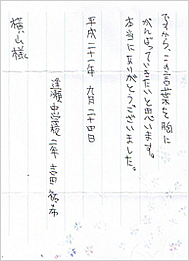 ですから、この言葉を胸に
がんばっていきたいと思います。
本当にありがとうございました。
平成二十一年 九月二十四日
逢瀬中学校二年 吉田
横山様